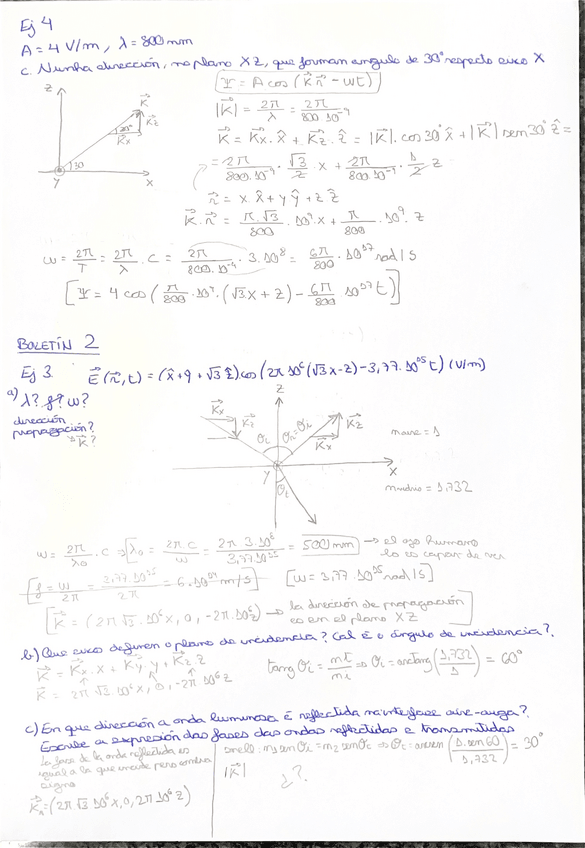 Ej 4
A = 4 V/m, λ = 800 nm
c. Nunha dirección, no plano XZ, que forman angulo de 30° respecto eixo X
Ψ = A cos (k⃗ r⃗ - wt)
|K⃗| = 2π/λ = 2π/800·10⁻⁹
K⃗ = K⃗x·x̂ + K⃗z·ẑ = |K⃗|·cos30° x̂ + |K⃗| sen30° ẑ =
= 2π/800·10⁻⁹ · √3/2 · x + 2π/800·10⁻⁹ · 1/2 z
r⃗ = x·x̂ + y ŷ + z ẑ
K⃗·r⃗ = π·√3/800 ·10⁹·x + π/800 ·10⁹·z
Z
K⃗
K⃗z
30°
K⃗x
30
Y
X
w = 2π/T = 2π/λ · c = 2π/800·10⁻⁹ · 3·10⁸ = 6π/800 · 10¹⁷ rad/s
[Ψ = 4 cos (π/800 ·10⁹·(√3 x + z) - 6π/800 10¹⁷ t)]
BOLETÍN 2
Ej 3. E⃗(r⃗,t) = (x̂ + ŷ + √3 ẑ) cos (2π 10⁶ (√3x - z) - 3,77·10¹⁵ t) (V/m)
a) λ? f? w?
dirección
propagación?
K⃗?
Z
K⃗x
K⃗z
θi
θr=θi
K⃗z
K⃗x
naire = 1
Y
X
θt
nvidrio = 1,732
w = 2π/λ₀ · c ⇒ λ₀ = 2π·c/w = 2π 3·10⁸/3,77·10¹⁵ = 500 nm → el ojo humano
lo es capaz de ver
[f = w/2π = 3,77·10¹⁵/2π = 6·10¹⁴ m/s] [w = 3,77·10¹⁵ rad/s]
[K⃗ = (2π √3·10⁶x, 0, -2π·10⁶z) → la dirección de propagación
es en el plano XZ]
b) Que eixos definen o plano de incidencia? Cal é o ángulo de incidencia?
K⃗ = K⃗x·x + K⃗y·y + K⃗z·z
K⃗ = 2π √3·10⁶x, 0, -2π 10⁶z
tang θi = nt/ni ⇒ θi = arctang (1,732/1) = 60°
c) En que dirección a onda luminosa é reflectida na interfase aire-auga?
Escribe a expresión das fases das ondas reflectidas e transmitidas
la fase de la onda reflectida es
igual a la que incide pero cambia
signo
K⃗r = (2π √3 10⁶x, 0, 2π 10⁶z)
snell: n₁ sen θi = n₂ sen θt ⇒ θt = arcsen (1·sen 60/1,732) = 30°
|K⃗|
¿?